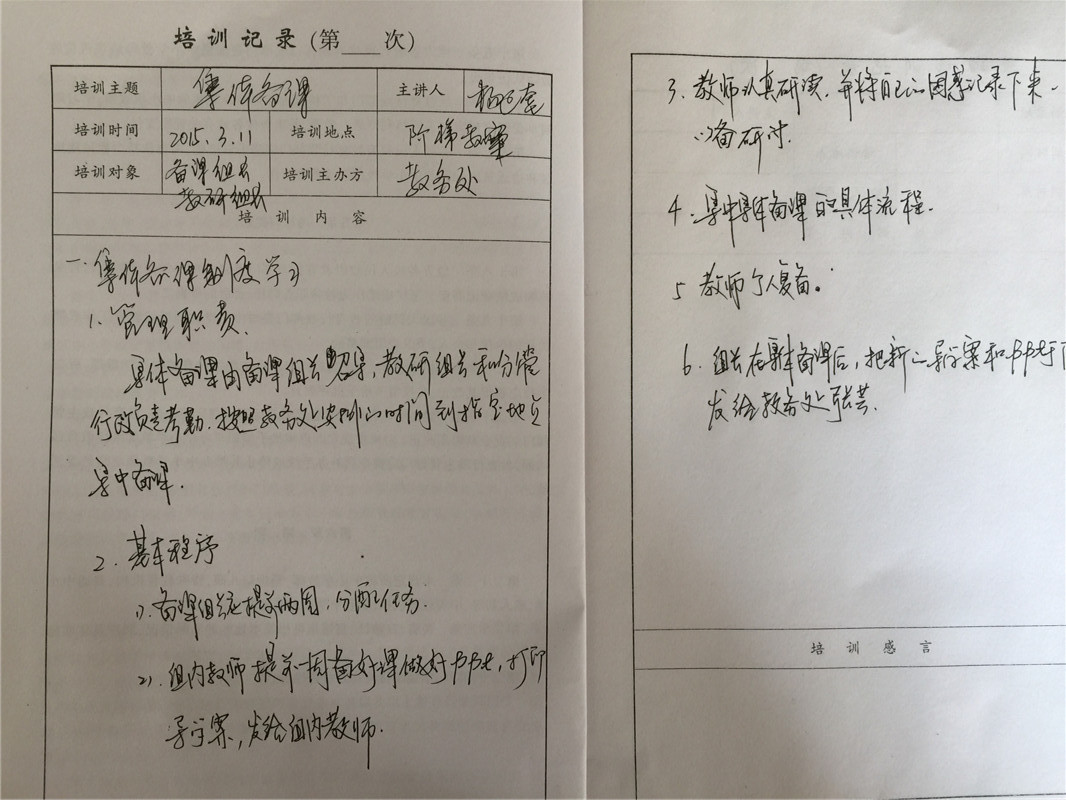 培训记录(第___次)
培训主题 集体备课 主讲人 杨
培训时间 2015.3.11 培训地点 阶梯教室
培训对象 备课组长 教研组长 培训主办方 教务处
培训内容
一. 集体备课制度学习
1. 管理职责.
集体备课由备课组长召集,教研组长和分管
行政负责考勤.按照教务处安排的时间到指定地点
集中备课.
2. 基本程序
1). 备课组长提前两周,分配任务.
2). 组内教师提前一周备好课做好PPt,打印
导学案,发给组内教师.
3. 教师认真研读,并将自己的困惑记录下来,
以备研讨.
4. 集中集体备课的具体流程.
5 教师个人复备。
6. 组长在集体备课后,把新的导学案和PPt打
发给教务处张芸.
培训感言